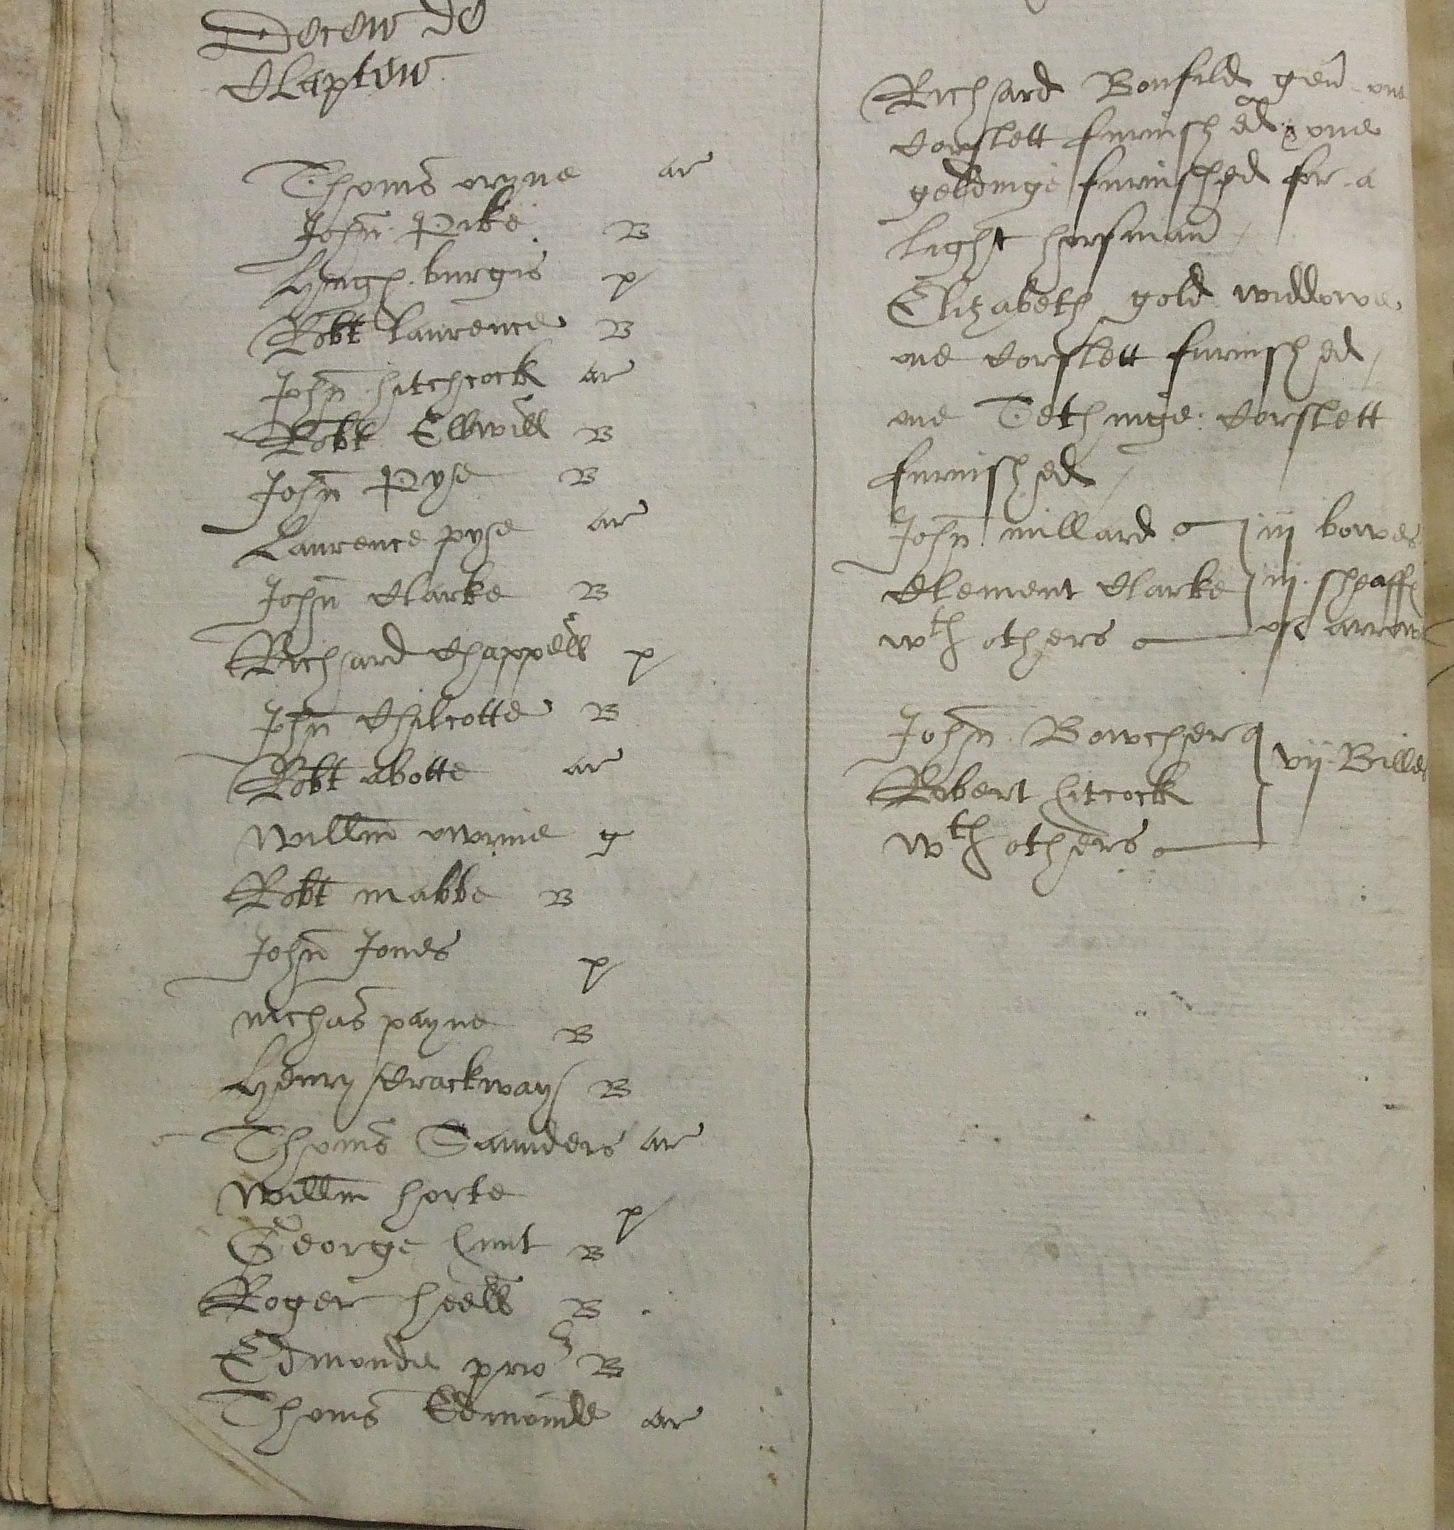 Decen de
Clapton
Thoms vryne ar
John Pike B
Hugh burgis p
Robt Laurence B
John hitchcock ar
Robt Ellwill B
John Pyse B
Laurence pyse ar
John Clarke B
Richard Chappell p
John Chilcotte B
Robt abotte ar
Willm g
Robt mabbe B
John Jones p
nichas payne B
Henry Crackway B
Thoms Saunders ar
Willm horte p
George hunt B
Roger heell B
Edmonde prior B
Thoms Edmonde ar
Richard Bonfild gen one
corslett furnished & one
geldinge furnished for a
light horsman
Elizabeth gold widdowe
one corslett furnished
one Tethinge corslett
furnished
John millard iij bowes
Clement Clarke iij sheaffe
wth others of arrows
John Bowcher
Robert hitcock vij Billes
wth others